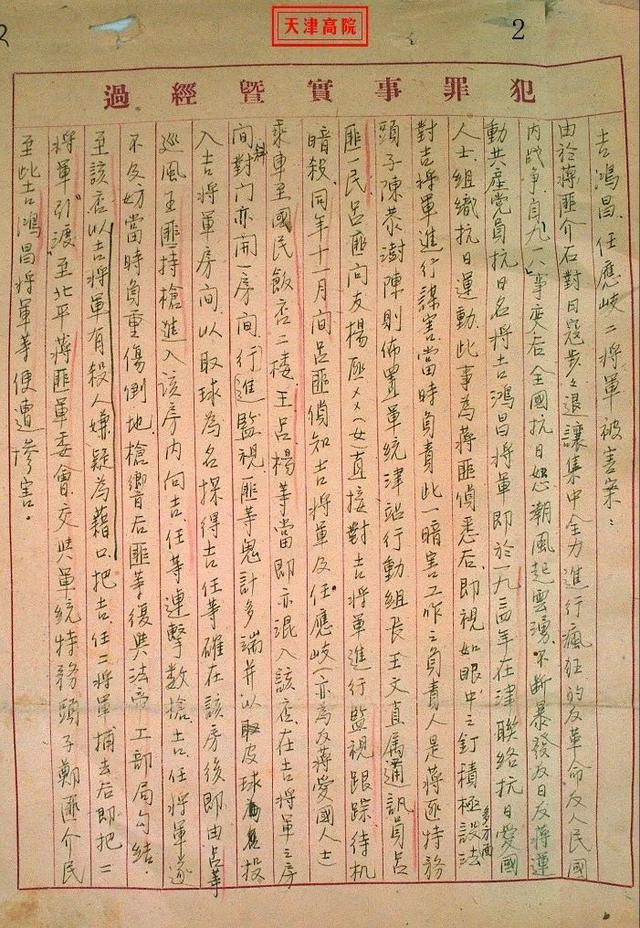 天津高院
2
犯罪事實暨經過
吉鴻昌、任應岐二將軍被害案：
由於蔣匪介石對日寇步々退讓集中全力進行瘋狂的反革命反人民國
内战争、自九一八事变后全國抗日怒潮風起雲湧、不断暴發反日反蔣運
動共産党員抗日名將吉鴻昌將軍即於一九三四年在津聯絡抗日愛國
人士、組織抗日運動、此事為蔣匪偵悉后、即視如眼中之釘積極設法多方面
對吉將軍進行謀害、當時負責此一暗害工作之負責人是蔣匪特務
頭子陳恭澍陳則佈置軍統津站行動組长王文直属通訊員呂
匪一民、呂匪向友楊匪××(女)直接對吉將軍進行監視跟踪待机
暗殺、同年十一月間呂匪偵知吉將軍及任應岐(亦為反蔣愛國人士)
乘車至國民飯店二楼、王呂楊等當即亦混入該店、在吉將軍之房
間斜對门亦開一房间、行進監視、匪等鬼計多端并以皮球投
入吉將軍房间、以取球為名探得吉任等確在該房後即由呂等
巡風王匪持槍進入該房内向吉、任等連擊数槍吉、任將軍遂
不及防當時負重傷倒地槍響后匪等復與法帝工部局勾结．
至該店以吉將軍有殺人嫌疑為藉口把吉、任二將軍捕去后即把二
將軍“引渡”至北平蔣匪軍委會、交與軍統特務頭子鄭匪介民
至此吉鴻昌將軍等便遭慘害．